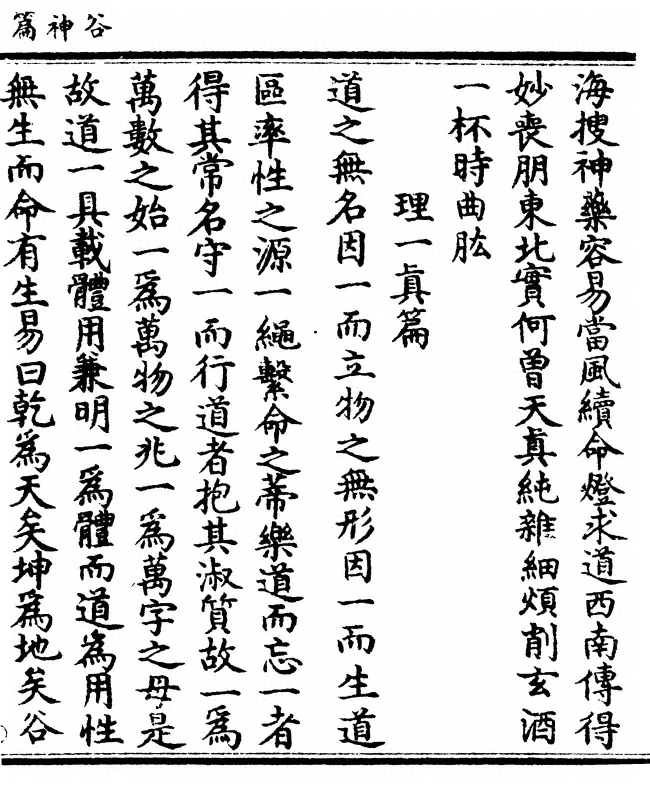 谷神篇
海搜神藥容易當風續命燈求道西南傳得
妙喪朋東北實何曾天真純雜細煩削玄酒
一杯時曲肱
理一真篇
道之無名因一而立物之無形因一而生道
區率性之源一繩繫命之蒂樂道而忘一者
得其常名守一而行道者抱其淑質故一為
萬數之始一為萬物之兆一為萬字之母是
故道一具載體用兼明一為體而道為用性
無生而命有生易曰乾為天矣坤為地矣谷